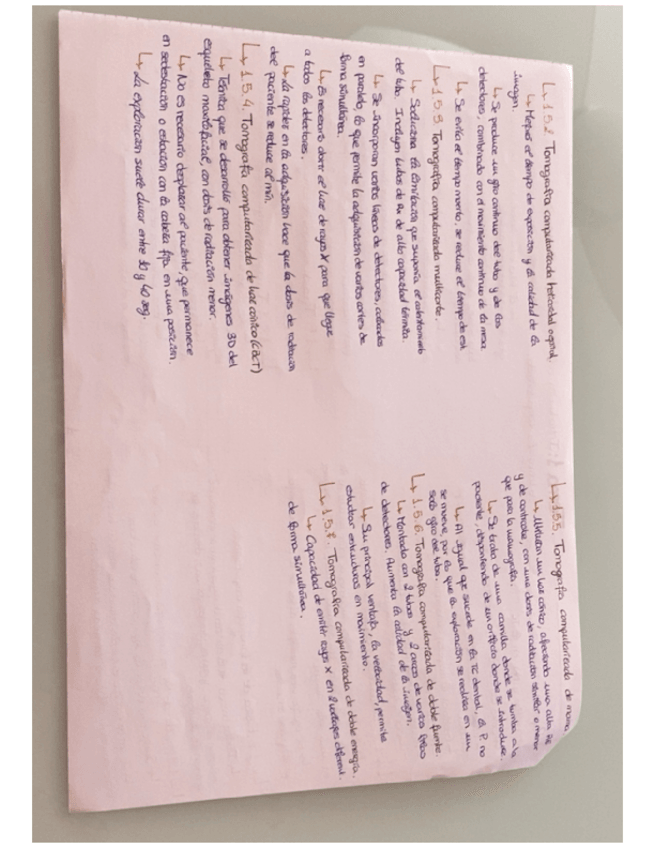 ↳ 1.5.2. Tomografía computarizada helicoidal espiral.
↳ Mejora el tiempo de exposición y la calidad de la
imagen.
↳ Se produce un giro continuo del tubo y de los
detectores, combinado con el movimiento continuo de la mesa
↳ Se evita el tiempo muerto, se reduce el tiempo de est.
↳ 1.5.3 Tomografía computarizada multicorte.
↳ Soluciona la limitación que suponía el calentamiento
del tubo. Incluyen tubos de Rx de alta capacidad térmica.
↳ Se incorporan varias líneas de detectores, colocados
en paralelo, lo que permite la adquisición de varios cortes de
forma simultánea.
↳ Es necesario abrir el haz de rayos X para que llegue
a todos los detectores.
↳ La rapidez en la adquisición hace que la dosis de radiación
del paciente se reduce al mín.
↳ 1.5.4. Tomografía computarizada de haz cónico (CBCT)
↳ Técnica que se desarrolló para obtener imágenes 3D del
esqueleto maxilofacial, con dosis de radiación menor.
↳ No es necesario desplazar al paciente, que permanece
en sedestación o estación con la cabeza fija en una posición.
↳ La exploración suele durar entre 10 y 40 seg.
↳ 1.5.5. Tomografía computarizada de mama
↳ Utilizan un haz cónico, ofreciendo una alta
y de contraste, con una dosis de radiación similar o menor
que para la mamografía.
↳ Se trata de una camilla donde se tumba a la
paciente, disponiendo de un orificio donde se introduce.
↳ Al igual que sucede en la TC dental, la P. no
se mueve, por lo que la exploración se realiza en un
solo giro del tubo.
↳ 1.5.6. Tomografía computarizada de doble fuente.
↳ Montada con 2 tubos y 2 arcos de varias filas
de detectores. Aumenta la calidad de la imagen.
↳ Su principal ventaja, la velocidad, permite
estudiar estructuras en movimiento.
↳ 1.5.7. Tomografía computarizada de doble energía.
↳ Capacidad de emitir rayos X en 2 voltajes diferent.
de forma simultánea.